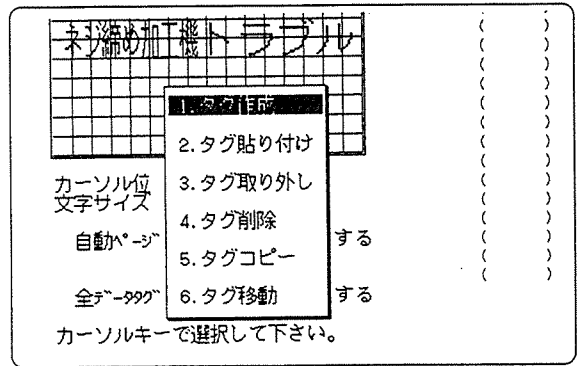 ネジ締め加工機トラブル
1.タグ作成
2.タグ貼り付け
3.タグ取り外し
4.タグ削除
5.タグコピー
6.タグ移動
カーソル位
文字サイズ
自動ページ
する
全データタグ
する
カーソルキーで選択して下さい。
( )
( )
( )
( )
( )
( )
( )
( )
( )
( )
( )
( )
( )
( )